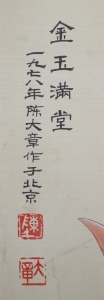 金玉滿堂
一九七八年陈大章作于北京
陳